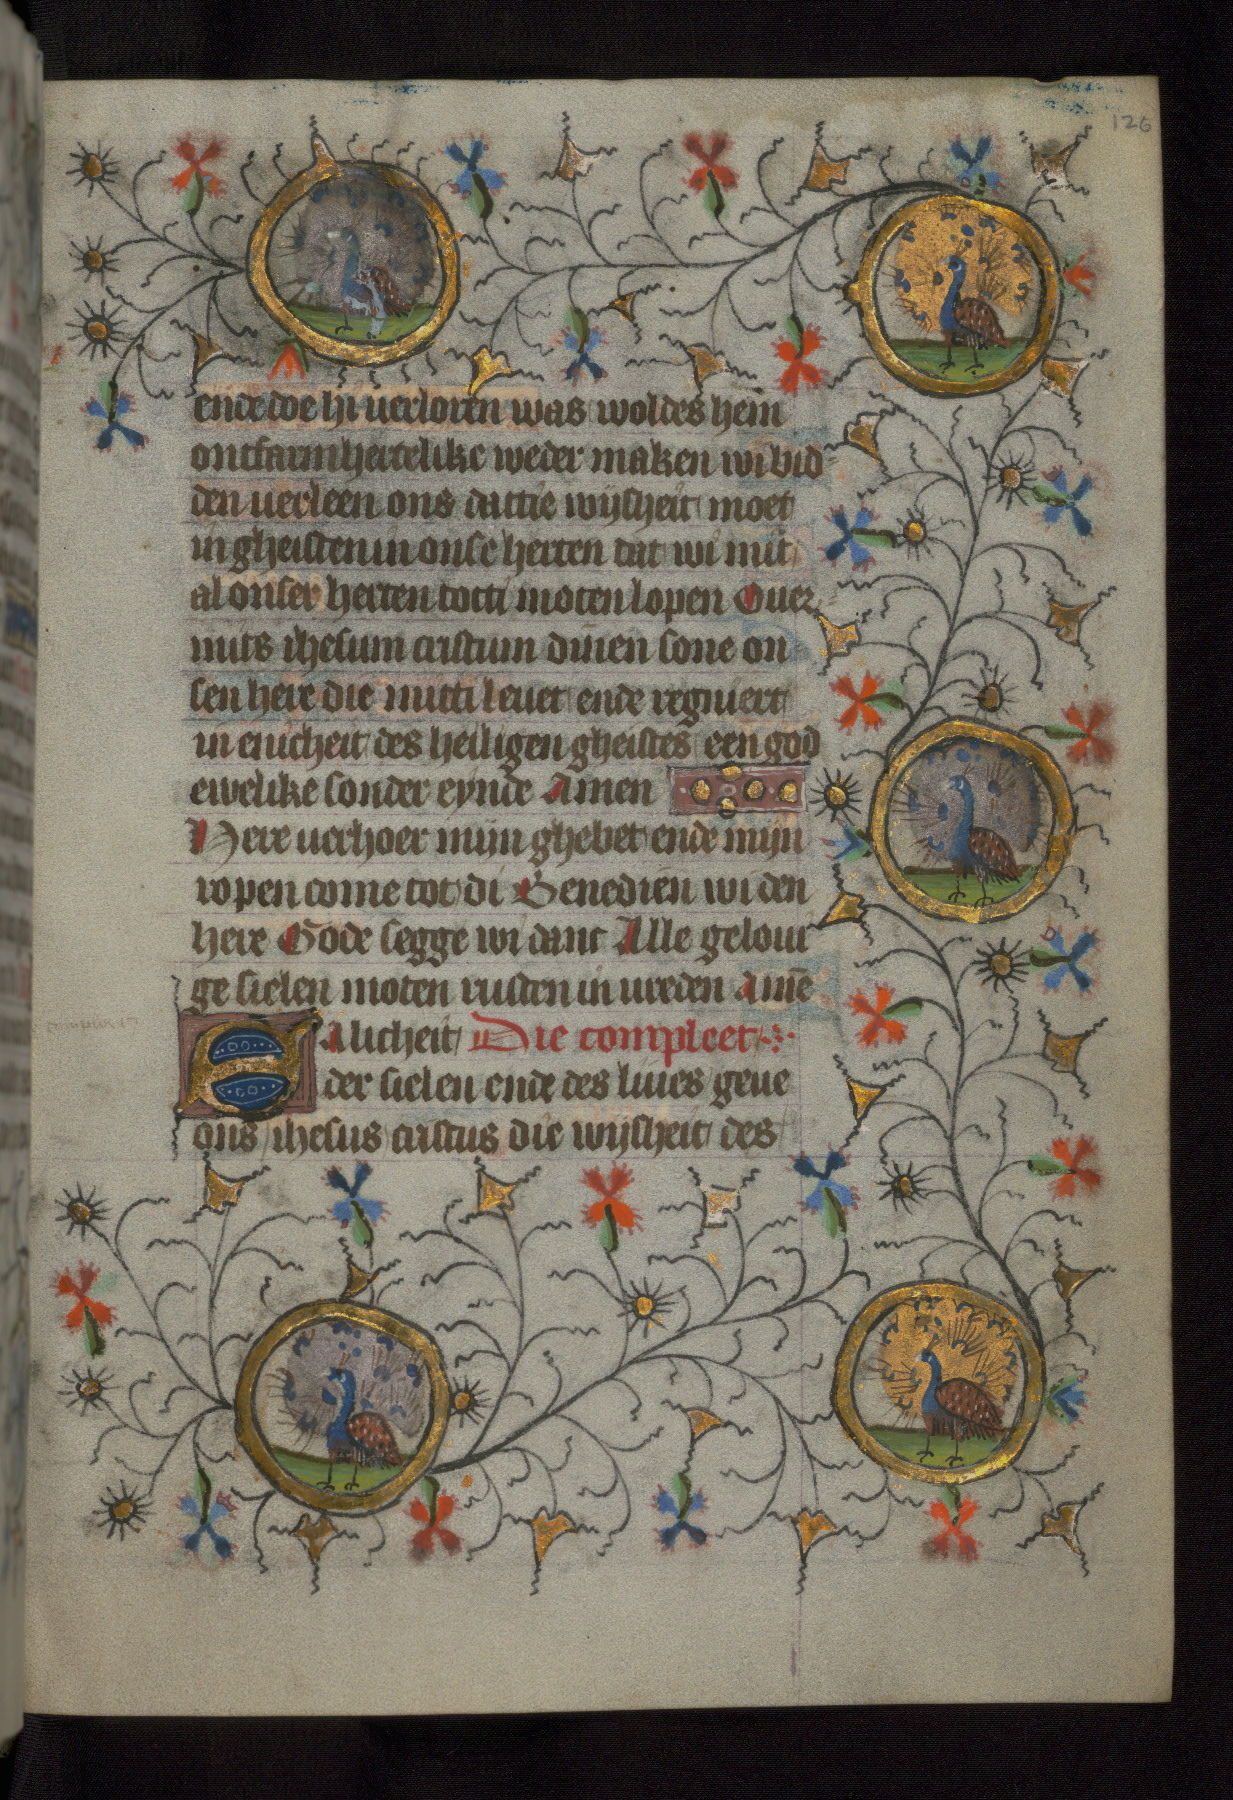 126
ende doe hi verloren was woldes hem
ontfarmhertelike weder maken wi bid
den verleen ons dattie wijsheit moet
in gheisten in onse herten dat wi mit
al onser herten totti moten lopen Ouer
mits ihesum cristum dinen sone on
sen here die mitti leuet ende regniert
in enicheit des heiligen gheistes een god
ewelike sonder eynde Amen
Here verhoer mijn ghebet ende mijn
ropen come tot di Benedien wi den
here Gode segge wi danc Alle gelouí
ge sielen moten rusten in vreden amē
EAlicheit Die compleet
der sielen ende des liues geue
ons ihesus cristus die wijsheit des